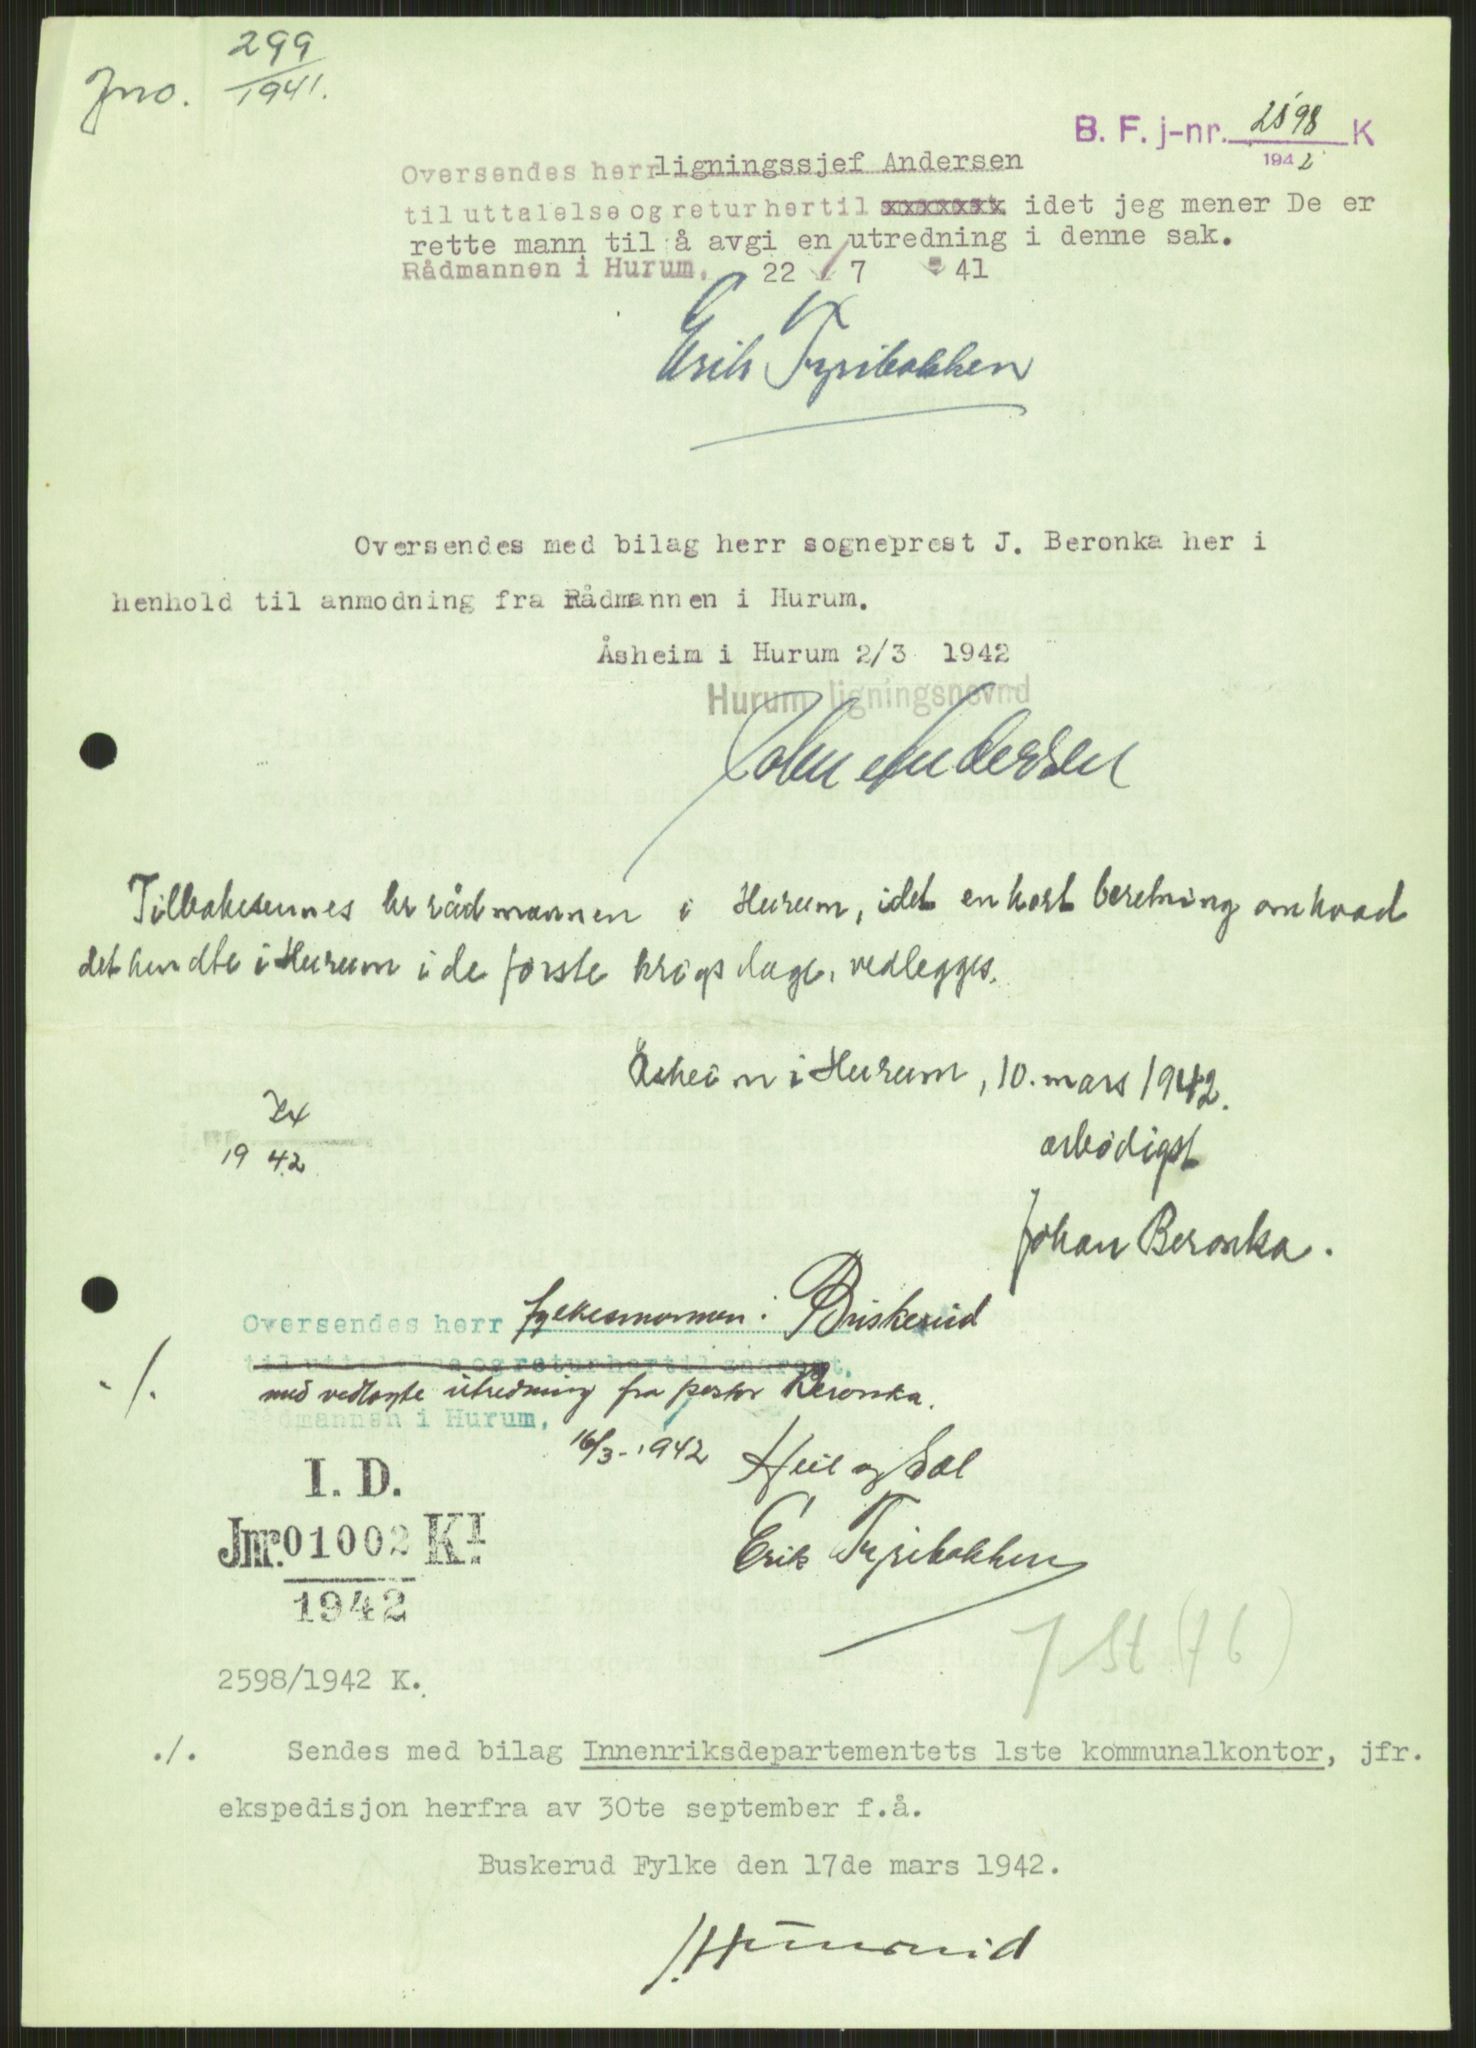 Jno. 299
1941.
B. F. j-nr. 2598 K
1942
Oversendes herr ligningssjef Andersen
til uttalelse og retur hertil xxxxxxx idet jeg mener De er
rette mann til å avgi en utredning i denne sak.
Rådmannen i Hurum. 22 / 7 - 41
Erik Fyribakken
Oversendes med bilag herr sogneprest J. Beronka her i
henhold til anmodning fra Rådmannen i Hurum.
Åsheim i Hurum 2/3 1942
Hurum ligningsnevnd
John Andersen
Tilbakesennes hr rådmannen i Hurum, idet en kort beretning om hvad
det hendte i Hurum i de første krigsdage, vedlegges.
Åsheim i Hurum, 10. mars 1942.
ærbødigst
Johan Beronka.
19 42
Oversendes herr fylkesmannen i Buskerud
til uttalelse og retur hertil snarest.
./.
med vedlagte utredning fra pastor Beronka.
Rådmannen i Hurum.
16/3-1942 Heil og Sæl
Erik Fyribakken
I. D.
Jnr. 01002 KI.
1942
2598/1942 K.
./. Sendes med bilag Innenriksdepartementets 1ste kommunalkontor, jfr.
ekspedisjon herfra av 30te september f.å.
Buskerud Fylke den 17de mars 1942.